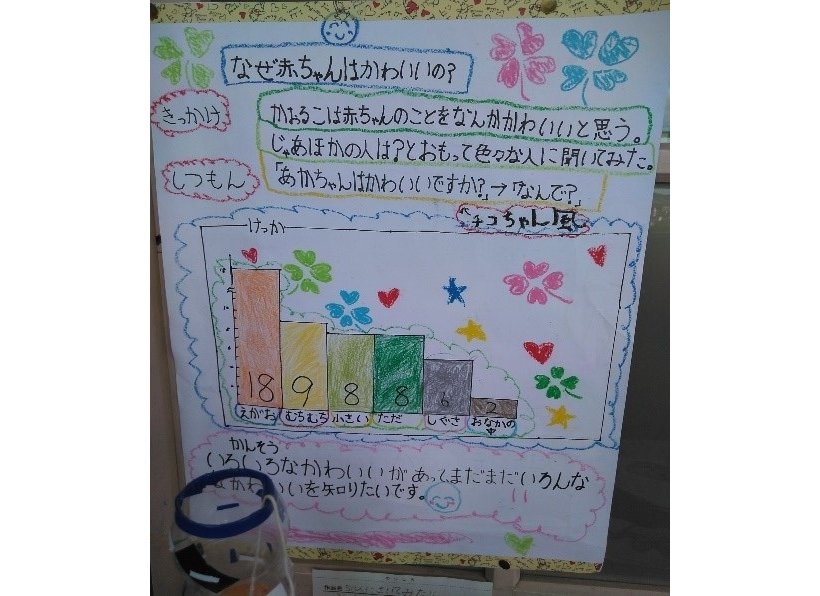 なぜ赤ちゃんはかわいいの?
きっかけ
かおるこは赤ちゃんのことをなんかかわいいと思う。
じゃあほかの人は?とおもって色々な人に聞いてみた。
しつもん
「あかちゃんはかわいいですか?」→「なんで?」
チコちゃん風
けっか
18 9 8 8 6 2
えがお むちむち 小さい ただ しぐさ おなかの中
かんそう
いろいろなかわいいがあってまだまだいろんな
なかわいいを知りたいです。